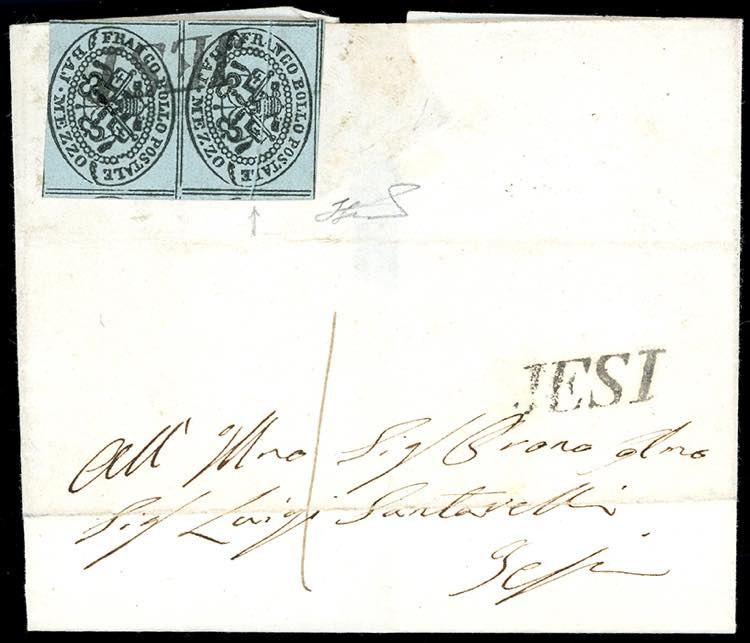 FRANCO BOLLO POSTALE MEZZO BAJ
FRANCO BOLLO POSTALE MEZZO BAJ
JESI
JESI
All' Illmo Sig Prono
Sig Luigi Santarelli
Jessi